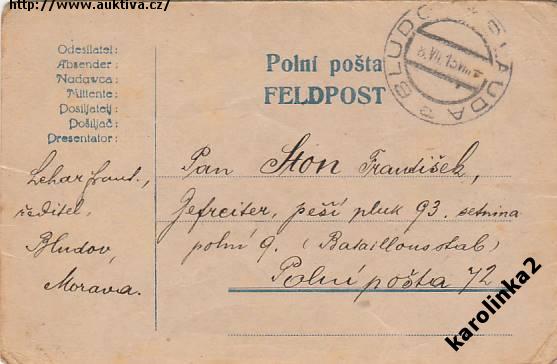 http://www.auktiva.cz/
Odesílatel:
Absender:
Nadawca:
Mittente:
Pošiljatelj:
Pošiljač:
Presentator:
Polní pošta
FELDPOST
BLUDOV * BLAUDA
Lehar Frant.,
ředitel,
Bludov,
Morava.
Pan Ston František,
Gefreiter, pěší pluk 93. setnina
polní 9. (Bataillonsstab)
Polní pošta 72
karolinka2